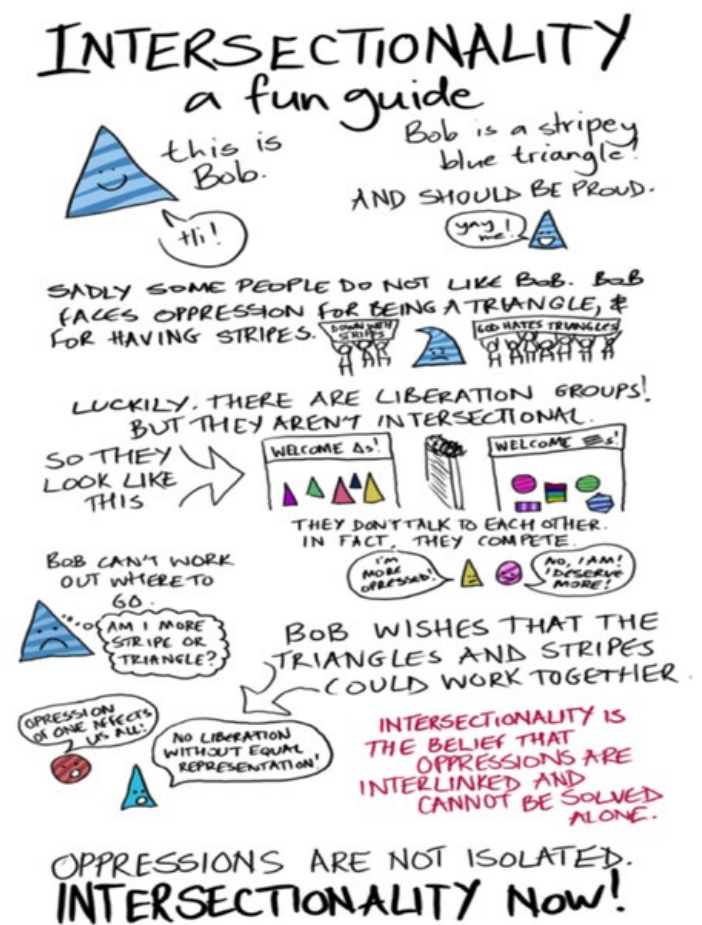 INTERSECTIONALITY
a fun guide
this is
Bob.
Hi!
Bob is a stripey
blue triangle!
AND SHOULD BE PROUD.
yay!
me!
SADLY SOME PEOPLE DO NOT LIKE BOB. BOB
FACES OPPRESSION FOR BEING A TRIANGLE, &
FOR HAVING STRIPES.
DOWN WITH
STRIPES
GOD HATES TRIANGLES
LUCKILY, THERE ARE LIBERATION GROUPS!
BUT THEY AREN'T INTERSECTIONAL.
SO THEY
LOOK LIKE
THIS
WELCOME Δs!
WELCOME ☰s!
THEY DON'T TALK TO EACH OTHER.
IN FACT, THEY COMPETE.
I'M
MORE
OPRESSED!
NO, I AM!
I DESERVE
MORE!
BOB CAN'T WORK
OUT WHERE TO
GO.
AM I MORE
STRIPE OR
TRIANGLE?
BOB WISHES THAT THE
TRIANGLES AND STRIPES
COULD WORK TOGETHER.
OPRESSION
OF ONE AFFECTS
US ALL!
NO LIBERATION
WITHOUT EQUAL
REPRESENTATION!
INTERSECTIONALITY IS
THE BELIEF THAT
OPPRESSIONS ARE
INTERLINKED AND
CANNOT BE SOLVED
ALONE.
OPPRESSIONS ARE NOT ISOLATED.
INTERSECTIONALITY NOW!